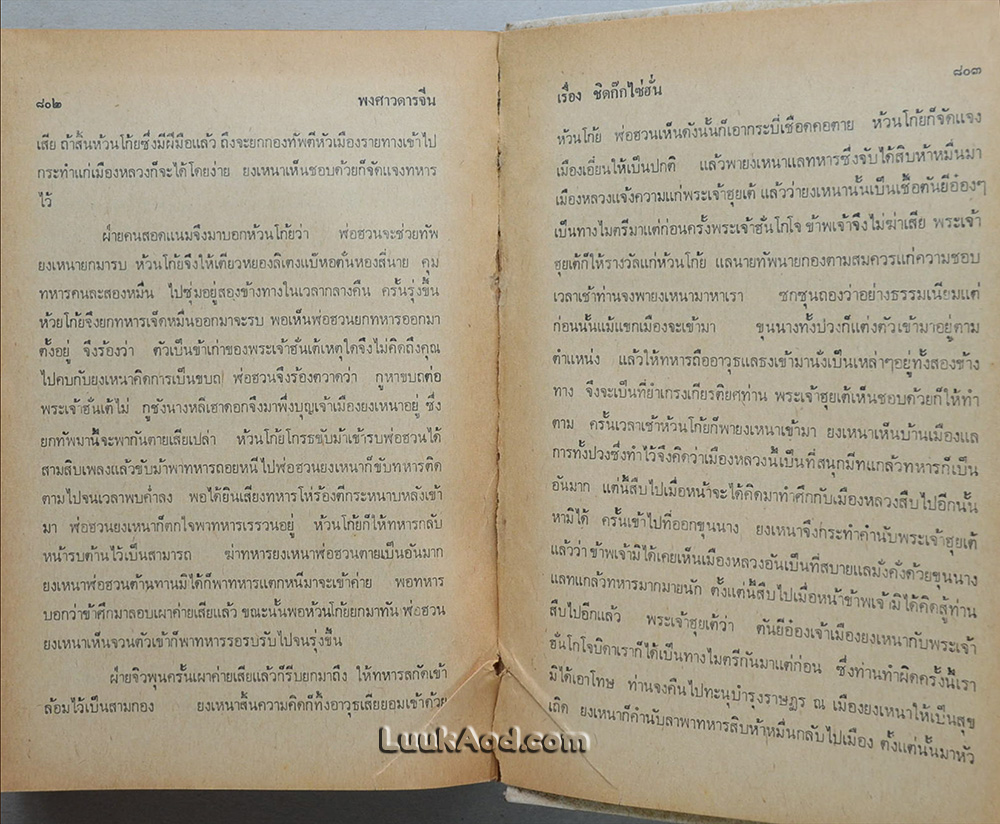 ๘๐๒ พงศาวดารจีน
เสีย ถ้าสิ้นห้วนโก้ยซึ่งมีฝีมือแล้ว ถึงจะยกกองทัพตีหัวเมืองรายทางเข้าไป
กระทำแก่เมืองหลวงก็จะได้โดยง่าย ยงเหนาเห็นชอบด้วยก็จัดแจงทหาร
ไว้
ฝ่ายคนสอดแนมจึงมาบอกห้วนโก้ยว่า พ่อฮวนจะช่วยทัพ
ยงเหนายกมารบ ห้วนโก้ยจึงให้เตียวหยองลิเตงแบ้หอตั๋นหองสี่นาย คุม
ทหารคนละสองหมื่น ไปซุ่มอยู่สองข้างทางในเวลากลางคืน ครั้นรุ่งขึ้น
ห้วยโก้ยจึงยกทหารเจ็ดหมื่นออกมาจะรบ พอเห็นพ่อฮวนยกทหารออกมา
ตั้งอยู่ จึงร้องว่า ตัวเป็นข้าเก่าของพระเจ้าฮั่นเต้เหตุใดจึงไม่คิดถึงคุณ
ไปคบกับยงเหนาคิดการเป็นขบถ พ่อฮวนจึงร้องตวาดว่า กูหาขบถต่อ
พระเจ้าฮั่นเต้ไม่ กูชังนางหลีเฮาดอกจึงมาพึ่งบุญเจ้าเมืองยงเหนาอยู่ ซึ่ง
ยกทัพมานี้จะพากันตายเสียเปล่า ห้วนโก้ยโกรธขับม้าเข้ารบพ่อฮวนได้
สามสิบเพลงแล้วขับม้าพาทหารถอยหนีไปพ่อฮวนยงเหนาก็ขับทหารติด
ตามไปจนเวลาพบค่ำลง พอได้ยินเสียงทหารโห่ร้องตีกระหนาบหลังเข้า
มา พ่อฮวนยงเหนาก็ตกใจพาทหารเรรวนอยู่ ห้วนโก้ยก็ให้ทหารกลับ
หน้ารบต้านไว้เป็นสามารถ ฆ่าทหารยงเหนาพ่อฮวนตายเป็นอันมาก
ยงเหนาพ่อฮวนต้านทานมิได้ก็พาทหารแตกหนีมาจะเข้าค่าย พอทหาร
บอกว่าข้าศึกมาลอบเผาค่ายเสียแล้ว ขณะนั้นพอห้วนโก้ยยกมาทัน พ่อฮวน
ยงเหนาเห็นจวนตัวเข้าก็พาทหารรอรบรับไปจนรุ่งขึ้น
ฝ่ายจิวพุนครั้นเผาค่ายเสียแล้วก็รีบยกมาถึง ให้ทหารสกัดเข้า
ล้อมไว้เป็นสามกอง ยงเหนาสิ้นความคิดก็ทิ้งอาวุธเสียยอมเข้าด้วย
เรื่อง ชิดก๊กไซ่ฮั่น ๘๐๓
ห้วนโก้ย พ่อฮวนเห็นดังนั้นก็เอากระบี่เชือดคอตาย ห้วนโก้ยก็จัดแจง
เมืองเอี่ยนให้เป็นปกติ แล้วพายงเหนาแลทหารซึ่งจับได้สิบห้าหมื่นมา
เมืองหลวงแจ้งความแก่พระเจ้าฮุยเต้ แล้วว่ายงเหนานั้นเป็นเชื้อตันยีอ๋องๆ
เป็นทางไมตรีมาแต่ก่อนครั้งพระเจ้าฮั่นโกโจ ข้าพเจ้าจึงไม่ฆ่าเสีย พระเจ้า
ฮุยเต้ก็ให้รางวัลแก่ห้วนโก้ย แลนายทัพนายกองตามสมควรแก่ความชอบ
เวลาเช้าท่านจงพายงเหนามาหาเรา ชกซุนถองว่าอย่างธรรมเนียมแต่
ก่อนนั้นแม้แขกเมืองจะเข้ามา ขุนนางทั้งปวงก็แต่งตัวเข้ามาอยู่ตาม
ตำแหน่ง แล้วให้ทหารถืออาวุธแลธงเข้ามานั่งเป็นเหล่าๆอยู่ทั้งสองข้าง
ทาง จึงจะเป็นที่ยำเกรงเกียรติยศท่าน พระเจ้าฮุยเต้เห็นชอบด้วยก็ให้ทำ
ตาม ครั้นเวลาเช้าห้วนโก้ยก็พายงเหนาเข้ามา ยงเหนาเห็นบ้านเมืองแล
การทั้งปวงซึ่งทำไว้จึงคิดว่าเมืองหลวงนี้เป็นที่สนุกมีทแกล้วทหารก็เป็น
อันมาก แต่นี้สืบไปเมื่อหน้าจะได้คิดมาทำศึกกับเมืองหลวงสืบไปอีกนั้น
หามิได้ ครั้นเข้าไปที่ออกขุนนาง ยงเหนาจึงกระทำคำนับพระเจ้าฮุยเต้
แล้วว่า ข้าพเจ้ามิได้เคยเห็นเมืองหลวงอันเป็นที่สบายแลมั่งคั่งด้วยขุนนาง
แลทแกล้วทหารมากมายนัก ตั้งแต่นี้สืบไปเมื่อหน้าข้าพเจ้ามิได้คิดสู้ท่าน
สืบไปอีกแล้ว พระเจ้าฮุยเต้ว่า ตันยีอ๋องเจ้าเมืองยงเหนากับพระเจ้า
ฮั่นโกโจบิดาเราก็ได้เป็นทางไมตรีกันมาแต่ก่อน ซึ่งท่านทำผิดครั้งนี้เรา
มิได้เอาโทษ ท่านจงคืนไปทะนุบำรุงราษฎร ณ เมืองยงเหนาให้เป็นสุข
เถิด ยงเหนาก็คำนับลาพาทหารสิบห้าหมื่นกลับไปเมือง ตั้งแต่นั้นมาหัว
LuukAod.com